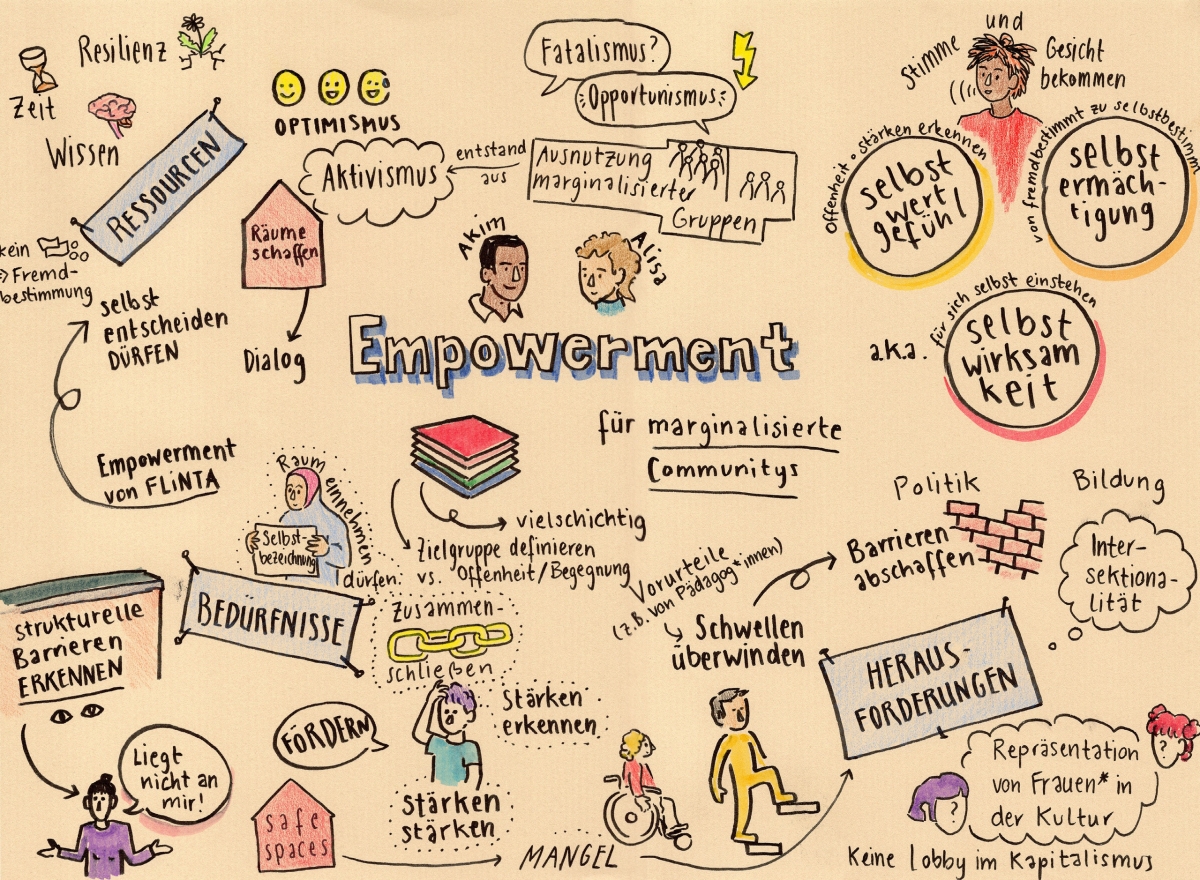 Resilienz
Zeit
Wissen
RESSOURCEN
kein
Fremd-
bestimmung
selbst
entscheiden
DÜRFEN
Empowerment
von FLINTA
OPTIMISMUS
Aktivismus
entstand
aus
Räume
schaffen
Dialog
Fatalismus?
Opportunismus
Ausnutzung
marginalisierter
Gruppen
Akim
Alisa
Empowerment
für marginalisierte
Communitys
Stimme
und
Gesicht
bekommen
Offenheit • stärken erkennen
selbst
wert
gefühl
von fremdbestimmt zu selbstbestimmt
selbst
ermäch-
tigung
a.k.a.
für sich selbst einstehen
selbst
wirksam
keit
vielschichtig
Zielgruppe definieren
vs. Offenheit/Begegnung
Raum einnehmen
dürfen:
Selbst-
bezeichnung
BEDÜRFNISSE
strukturelle
Barrieren
ERKENNEN
Liegt
nicht an
mir!
Zusammen-
schließen
Stärken
erkennen
FÖRDERN
Stärken
stärken
safe
spaces
MANGEL
Vorurteile
(z.B. von Pädagog*innen)
Schwellen
überwinden
Politik
Barrieren
abschaffen
Bildung
Inter-
sektiona-
lität
HERAUS-
FORDERUNGEN
Repräsentation
von Frauen* in
der Kultur
?
?
Keine Lobby im Kapitalismus